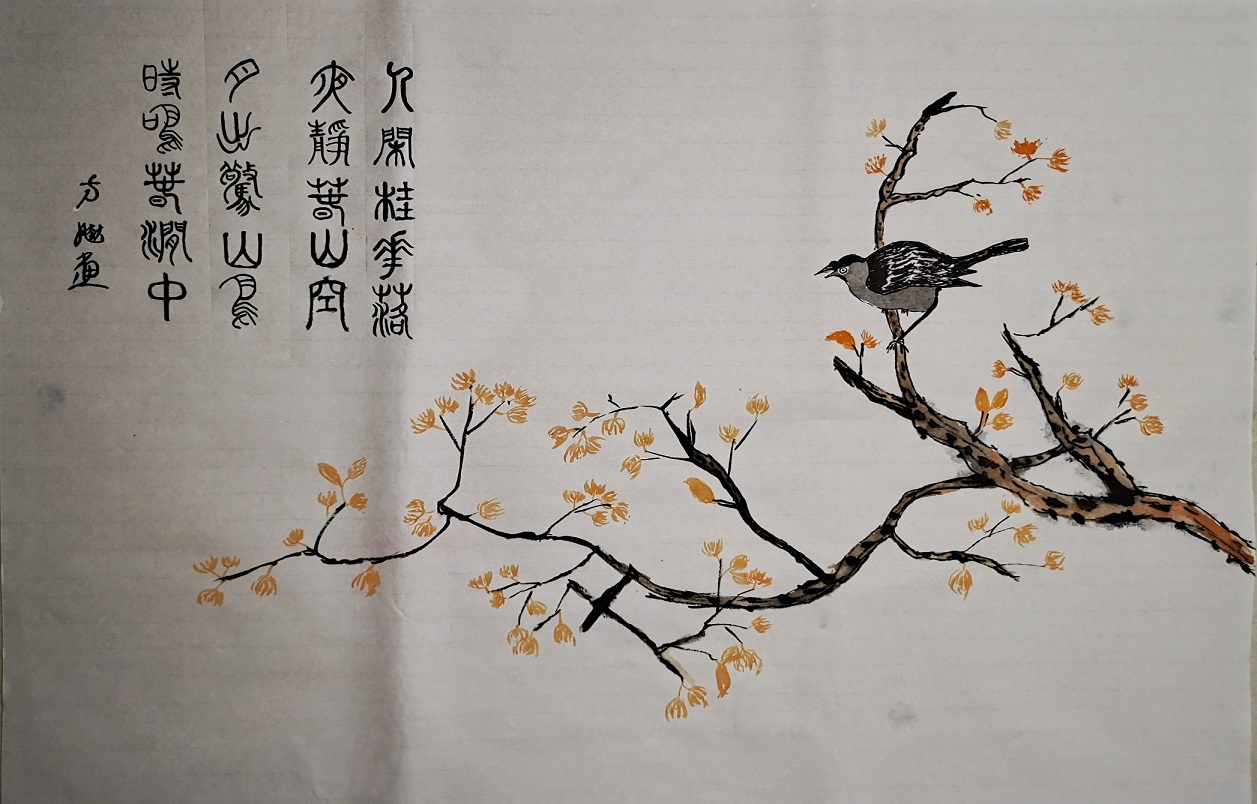 人閑桂花落
夜靜春山空
月出驚山鳥
時鳴春澗中
方畫